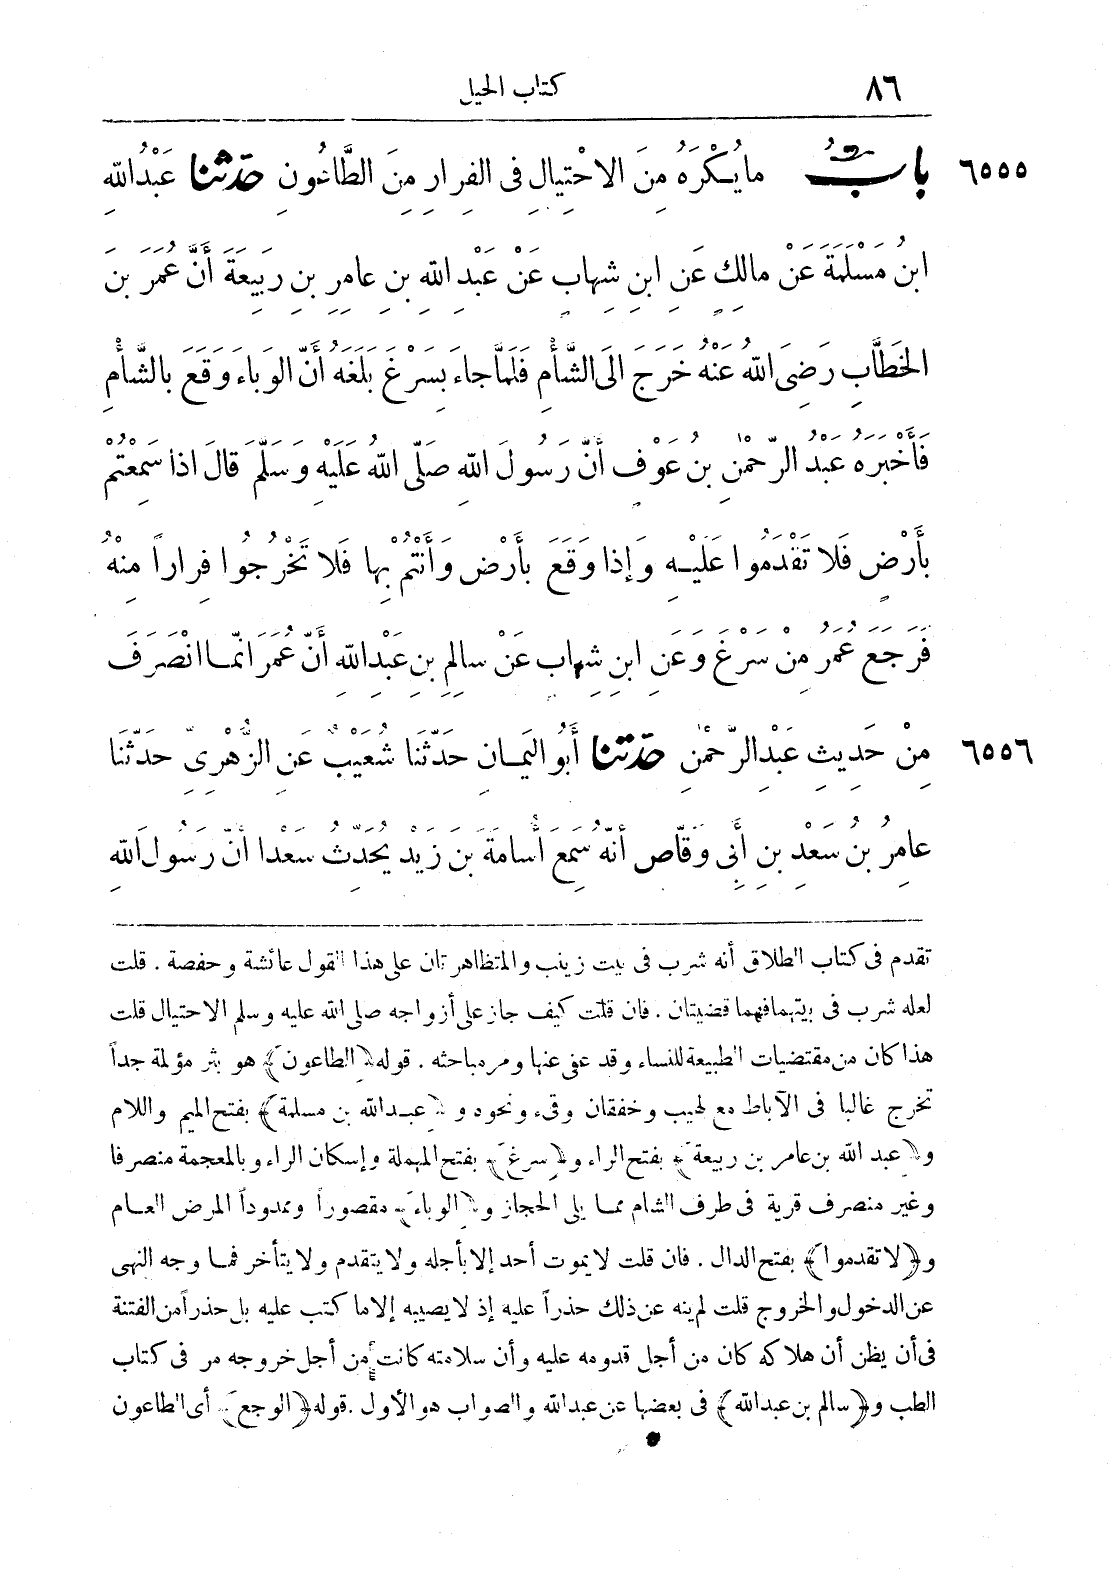 ٨٦
كتاب الحيل
٦٥٥٥ بابُ ما يُكْرَهُ مِنَ الاحْتِيالِ فى الفِرارِ مِنَ الطَّاعُونِ حَدَّثنا عَبْدُ اللهِ
ابنُ مَسْلَمَةَ عَنْ مالِكٍ عَنِ ابنِ شِهابٍ عَنْ عَبْدِ اللهِ بنِ عامِرِ بنِ رَبِيعَةَ أَنَّ عُمَرَ بنَ
الخَطَّابِ رَضِىَ اللهُ عَنْهُ خَرَجَ الَى الشَّأْمِ فَلَمَّا جاءَ بِسَرْغَ بَلَغَهُ أَنَّ الوَباءَ وَقَعَ بالشَّأْمِ
فَأَخْبَرَهُ عَبْدُ الرَّحْمٰنِ بنُ عَوْفٍ أَنَّ رَسُولَ اللهِ صَلَّى اللهُ عَلَيْهِ وَسَلَّمَ قالَ اذا سَمِعْتُمْ
بأَرْضٍ فَلا تَقْدَمُوا عَلَيْهِ وَإذا وَقَعَ بأَرْضٍ وَأَنْتُمْ بِها فَلا تَخْرُجُوا فِراراً مِنْهُ
فَرَجَعَ عُمَرُ مِنْ سَرْغَ وَعَنِ ابنِ شِهابٍ عَنْ سالِمِ بنِ عَبْدِ اللهِ أَنَّ عُمَرَ انَّما انْصَرَفَ
٦٥٥٦ مِنْ حَدِيثِ عَبْدِ الرَّحْمٰنِ حَدَّثنا أَبُو اليَمانِ حَدَّثَنا شُعَيْبٌ عَنِ الزُّهْرِىِّ حَدَّثَنا
عامِرُ بنُ سَعْدِ بنِ أَبِى وَقَّاصٍ أَنَّهُ سَمِعَ أُسامَةَ بنَ زَيْدٍ يُحَدِّثُ سَعْداً أَنَّ رَسُولَ اللهِ
تقدم فى كتاب الطلاق أنه شرب فى بيت زينب والمتظاهرتان على هذا القول عائشة وحفصة . قلت
لعله شرب فى بيتهما فهما قضيتان . فان قلت كيف جاز على أزواجه صلى الله عليه وسلم الاحتيال قلت
هذا كان من مقتضيات الطبيعة للنساء وقد عفى عنها ومر مباحثه . قوله ﴿الطاعون﴾ هو بثر مؤلمة جداً
تخرج غالبا فى الآباط مع لهيب وخفقان وقىء ونحوه و ﴿عبد الله بن مسلمة﴾ بفتح الميم واللام
و﴿عبد الله بن عامر بن ربيعة﴾ بفتح الراء و﴿سرغ﴾ بفتح المهملة وإسكان الراء وبالمعجمة منصرفا
وغير منصرف قرية فى طرف الشام مما يلى الحجاز و﴿الوباء﴾ مقصوراً وممدوداً المرض العام
و﴿لا تقدموا﴾ بفتح الدال . فان قلت لا يموت أحد إلا بأجله ولا يتقدم ولا يتأخر فما وجه النهى
عن الدخول والخروج قلت لم ينه عن ذلك حذراً عليه إذ لا يصيبه إلا ما كتب عليه بل حذراً من الفتنة
فى أن يظن أن هلاكه كان من أجل قدومه عليه وأن سلامته كانت من أجل خروجه مر فى كتاب
الطب و﴿سالم بن عبد الله﴾ فى بعضها عن عبد الله والصواب هو الأول . قوله ﴿الوجع﴾ أى الطاعون